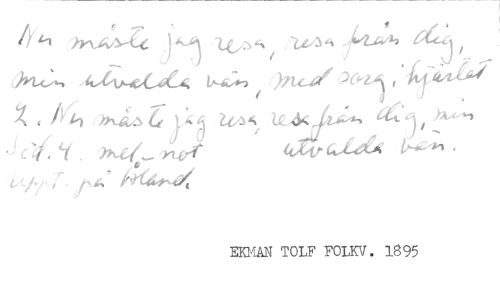 Nu måste jag resa, resa från dig,
min utvalda vän, med sorg i hjärtat
2. Nu måste jag resa, resa från dig, min
Söd. 4. mel. - not utvalda vän.
uppt. på Åland.
EKMAN TOLF FOLKV. 1895